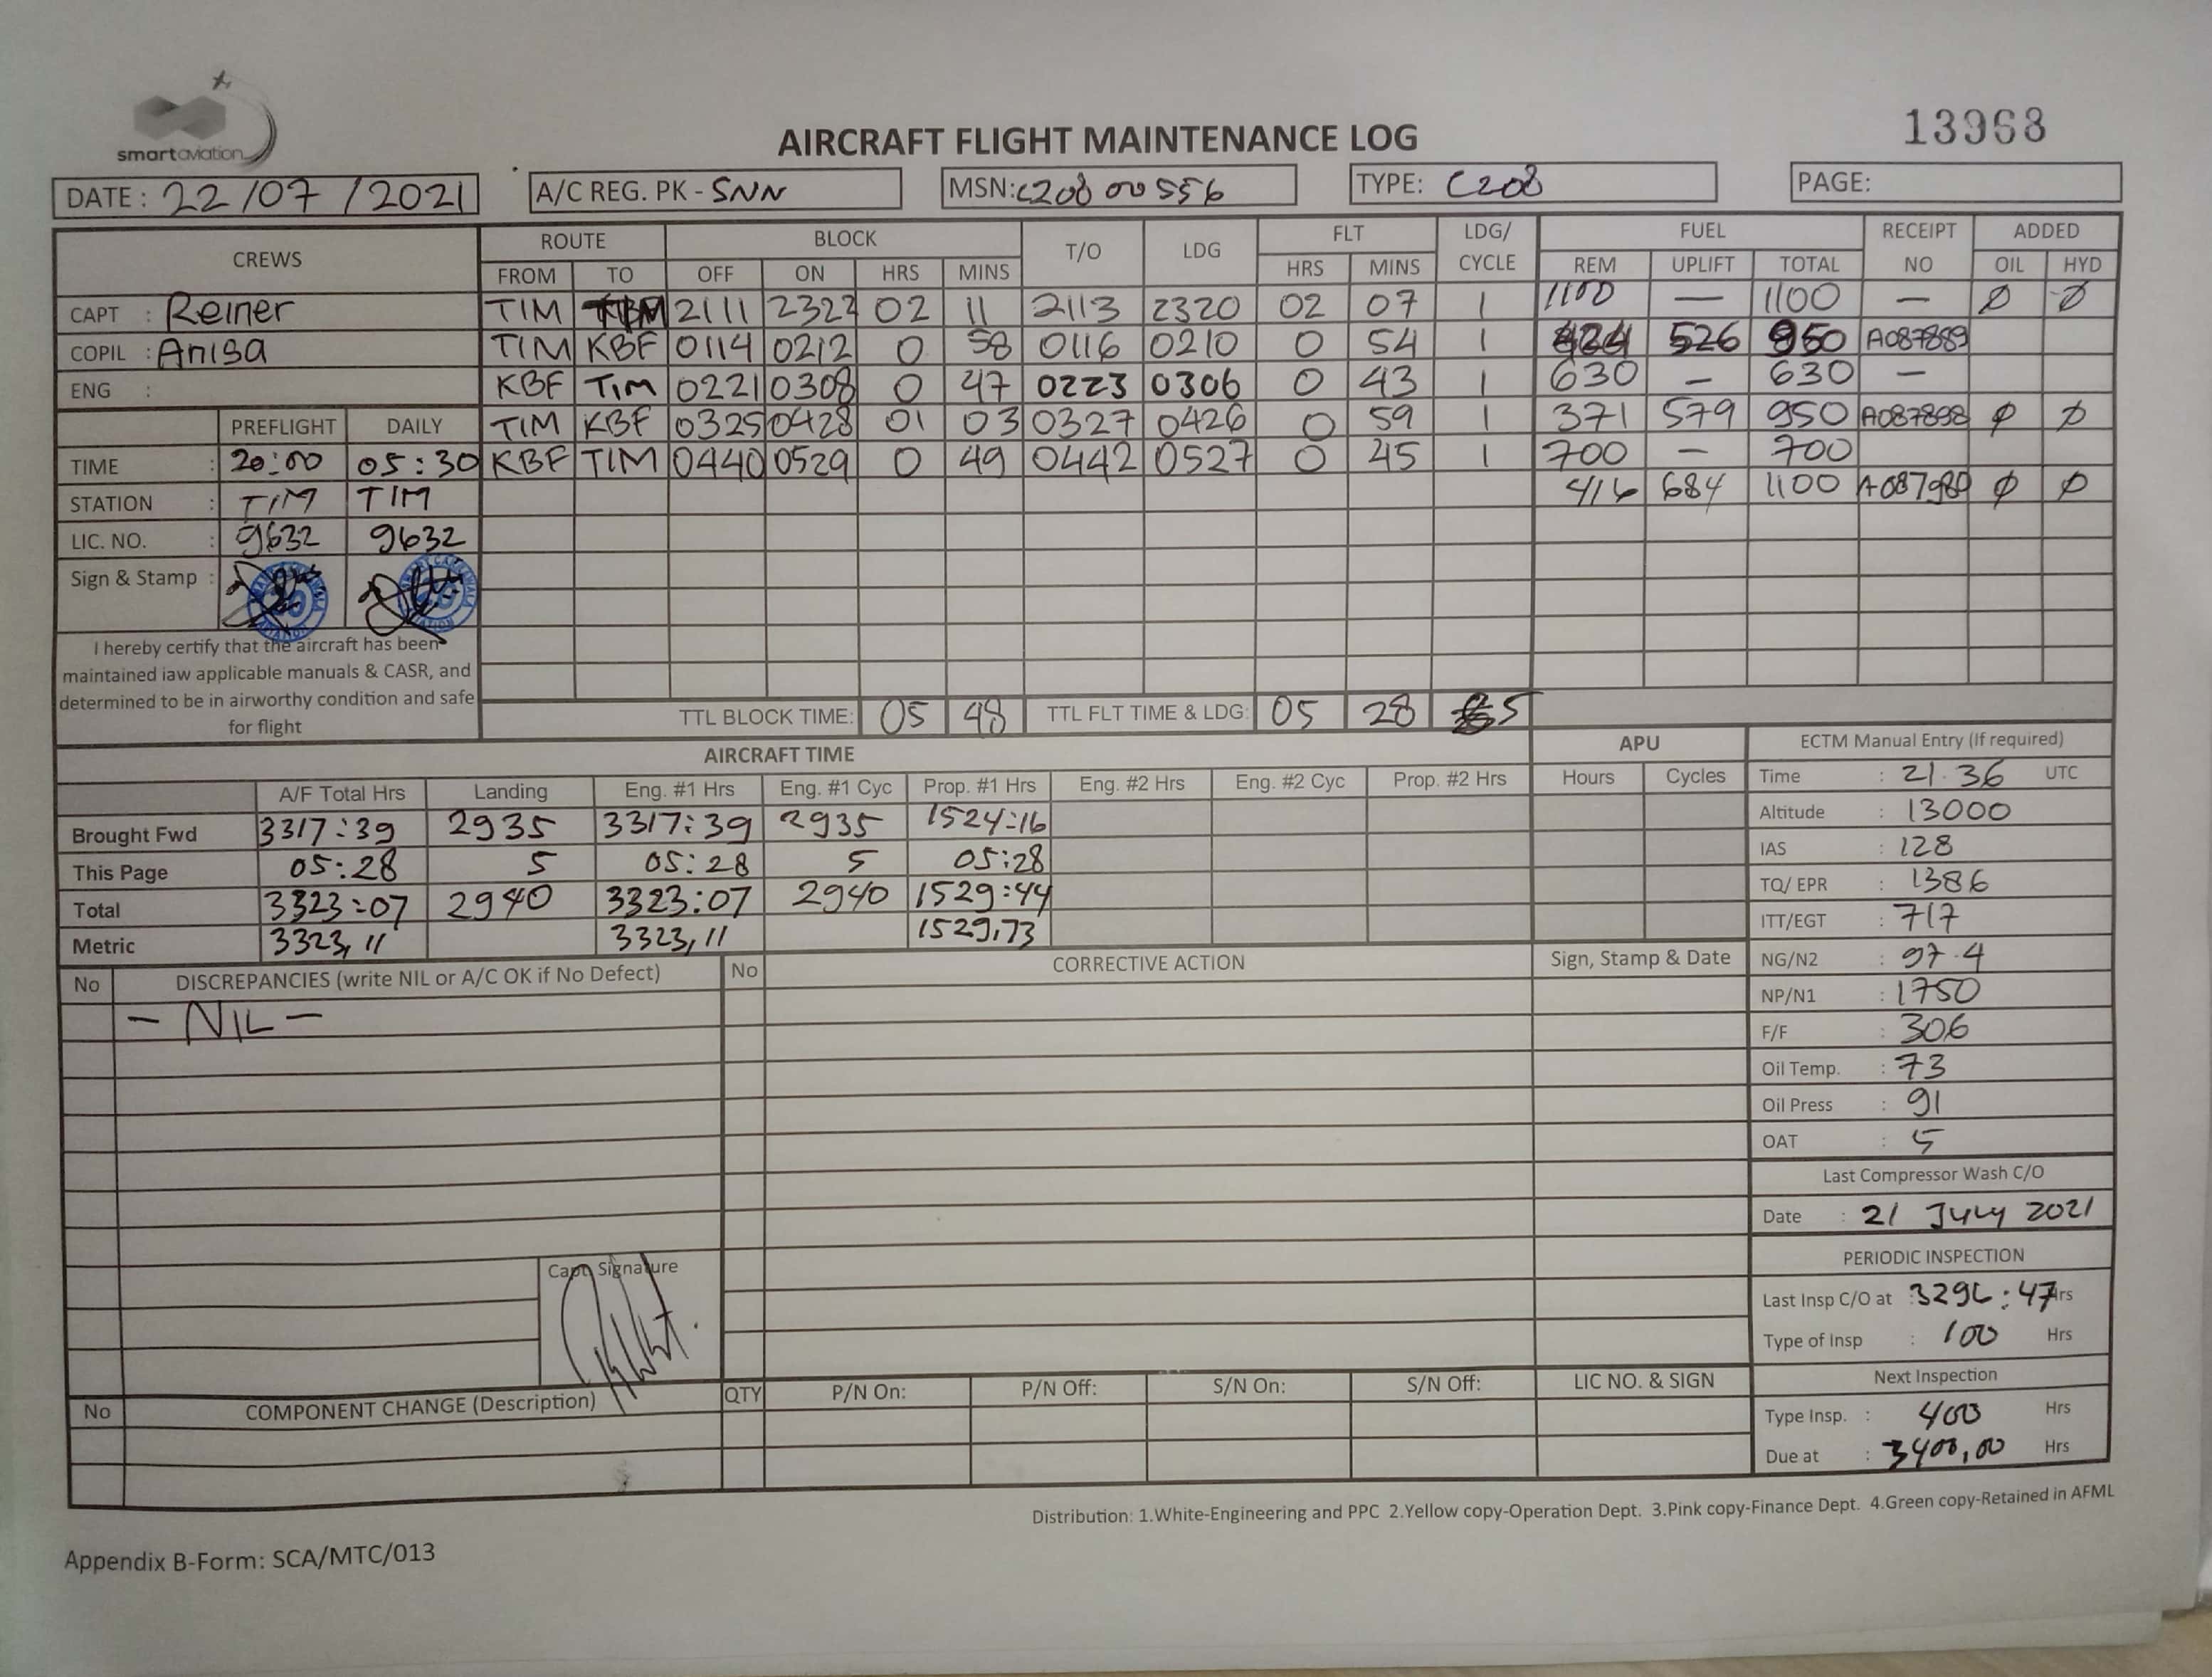 smartaviation
AIRCRAFT FLIGHT MAINTENANCE LOG
13968
DATE : 22/07/2021 A/C REG. PK - SNN MSN: C208 00 556 TYPE: C208 PAGE:
CREWS ROUTE BLOCK T/O LDG FLT LDG/ CYCLE FUEL RECEIPT NO ADDED
FROM TO OFF ON HRS MINS HRS MINS REM UPLIFT TOTAL OIL HYD
CAPT : Reiner TIM 2111 2322 02 11 2113 2320 02 07 1 1100 — 1100 — Ø Ø
COPIL : Anisa TIM KBF 0114 0212 0 58 0116 0210 0 54 1 424 526 950 A087889
ENG : KBF TIM 0221 0308 0 47 0223 0306 0 43 1 630 — 630 —
PREFLIGHT DAILY TIM KBF 0325 0428 01 03 0327 0426 0 59 1 371 579 950 A087898 Ø Ø
TIME : 20:00 05:30 KBF TIM 0440 0529 0 49 0442 0527 0 45 1 700 — 700
STATION : TIM TIM 416 684 1100 A087980 Ø Ø
LIC. NO. : 9632 9632
Sign & Stamp :
I hereby certify that the aircraft has been
maintained iaw applicable manuals & CASR, and
determined to be in airworthy condition and safe
for flight
TTL BLOCK TIME: 05 48 TTL FLT TIME & LDG: 05 28 5
AIRCRAFT TIME APU ECTM Manual Entry (If required)
A/F Total Hrs Landing Eng. #1 Hrs Eng. #1 Cyc Prop. #1 Hrs Eng. #2 Hrs Eng. #2 Cyc Prop. #2 Hrs Hours Cycles Time : 21.36 UTC
Brought Fwd 3317:39 2935 3317:39 2935 1524:16 Altitude : 13000
This Page 05:28 5 05:28 5 05:28 IAS : 128
Total 3323:07 2940 3323:07 2940 1529:44 TQ/ EPR : 1386
Metric 3323,11 3323,11 1529,73 ITT/EGT : 717
No DISCREPANCIES (write NIL or A/C OK if No Defect) No CORRECTIVE ACTION Sign, Stamp & Date NG/N2 : 97.4
- NIL - NP/N1 : 1750
F/F : 306
Oil Temp. : 73
Oil Press : 91
OAT : 5
Last Compressor Wash C/O
Date : 21 July 2021
PERIODIC INSPECTION
Capt. Signature
Last Insp C/O at : 3296:47 Hrs
Type of Insp : 100 Hrs
Next Inspection
No COMPONENT CHANGE (Description) QTY P/N On: P/N Off: S/N On: S/N Off: LIC NO. & SIGN
Type Insp. : 400 Hrs
Due at : 3400,00 Hrs
Distribution: 1.White-Engineering and PPC 2.Yellow copy-Operation Dept. 3.Pink copy-Finance Dept. 4.Green copy-Retained in AFML
Appendix B-Form: SCA/MTC/013